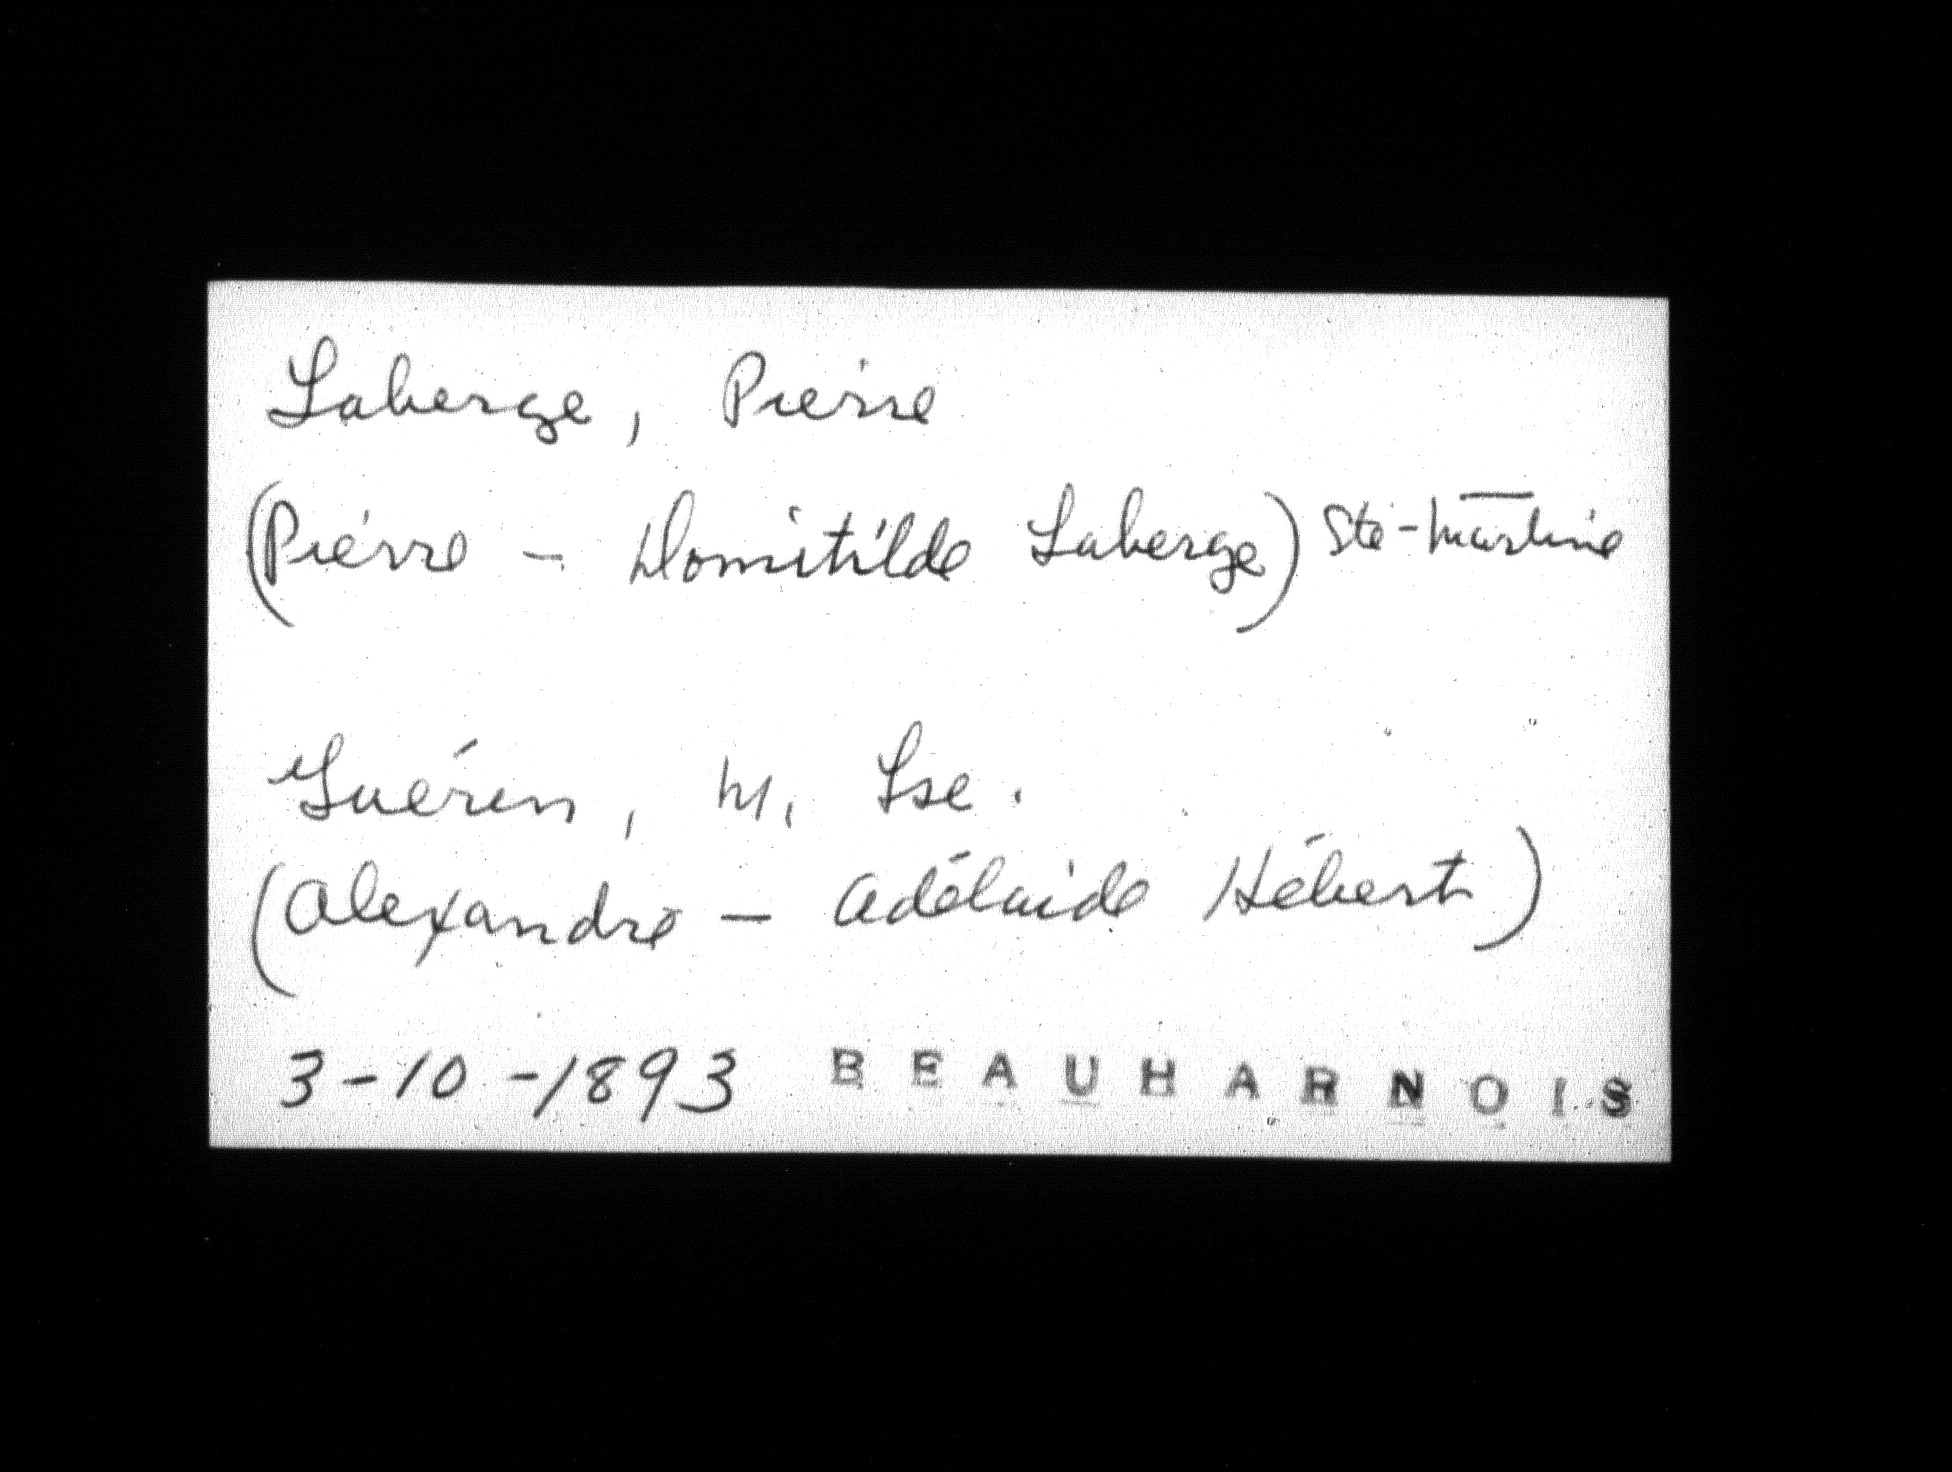 Laberge, Pierre
(Pierre - Domitilde Laberge) Ste-Martine
Guérin, M. Lse.
(Alexandre - Adélaide Hébert)
3-10-1893 BEAUHARNOIS